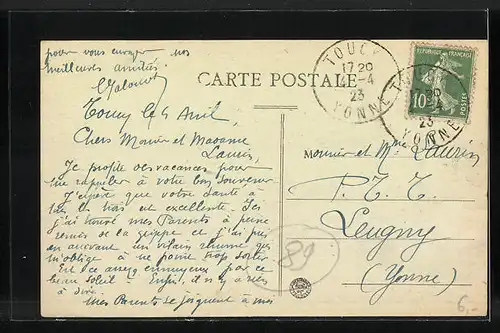 pour vous envoyer nos
meilleures amitiés
CARTE POSTALE
TOUCY
17 20
-4
23
YONNE
REPUBLIQUE FRANÇAISE
10
POSTES
Toucy le 4 Avril,
Chers Monsieur et Madame
Laurin,
Je profite des vacances pour
me rappeler à votre bon souvenir
J'espère que votre santé à
tous est excellente. Ici
j'ai trouvé mes Parents à peine
remis de la grippe et j'ai pris
en arrivant un vilain rhume qui
m'oblige à ne point trop sortir
Est-ce assez ennuyeux par ce
beau soleil - Enfin, il n'y a rien
à dire.
Mes Parents se joignent à moi
Monsieur et Mme Laurin
P. T. T.
Leugny
(Yonne)
89
6,-